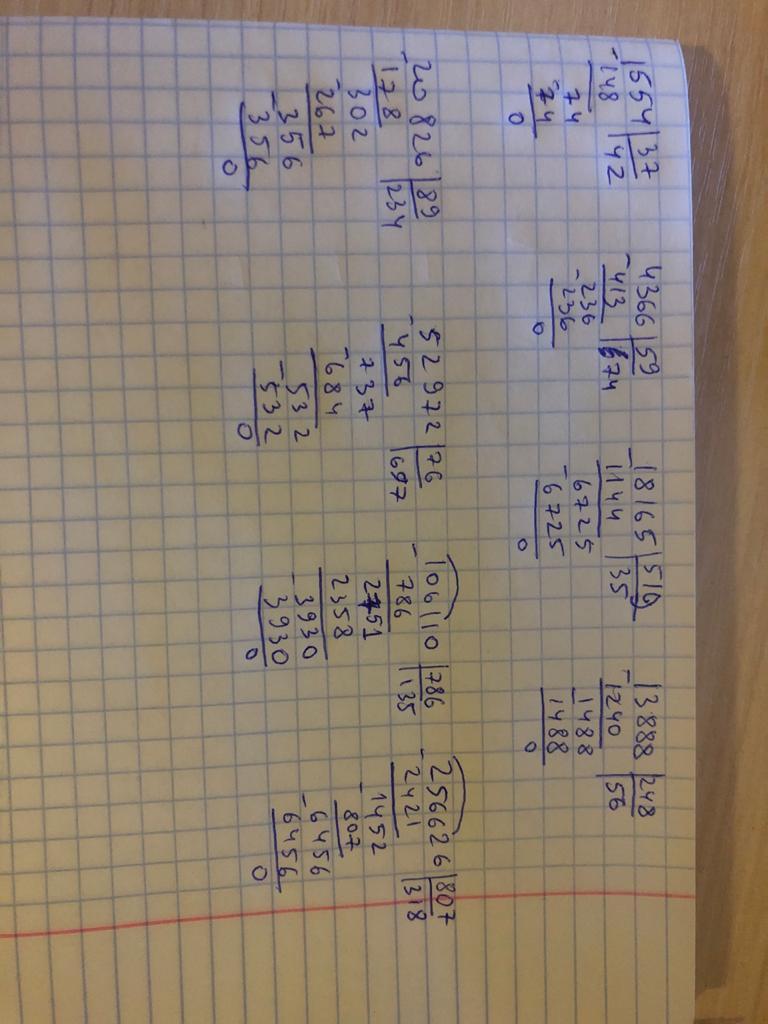 1554|37
-148|42
74
-74
0
4366|59
-413|74
-236
236
0
18165|519
-1144|35
-6725
6725
0
13888|248
-1240|56
-1488
1488
0
-20826|89
178|234
302
-267
-356
356
0
52972|76
-456|697
737
-684
-532
532
0
106110|786
-786|135
2751
2358
-3930
3930
0
256626|807
-2421|318
-1452
807
-6456
6456
0